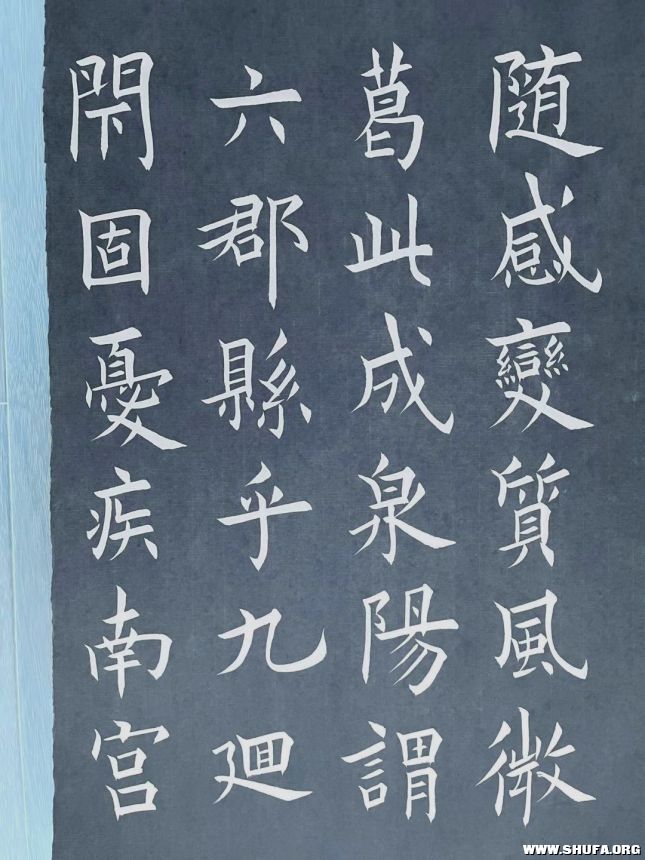 随感變質風微
葛此成泉陽謂
六郡縣乎九廻
閇固憂疾南宫
WWW.SHUFA.ORG